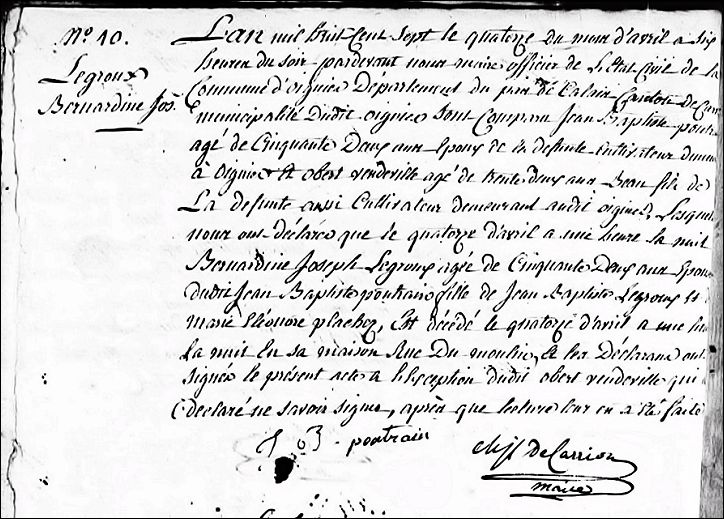 N° 10.
Legroux
Bernardine Jos.
L'an mil huit Cent Sept le quatorze du mois d'avril a six
heures du soir pardevant nous maire officier de l'Etat Civil de la
Commune d'oignies Département du pas de Calais Canton de Car
municipalité dudit oignies sont Comparu Jean Baptiste poutr
agé de Cinquante Deux ans Epoux de la defunte Cultivateur demeu
à Oignies et obert vendeville agé de trente deux ans Beau fils de
La defunte aussi Cultivateur demeurant audit oignies, Lesquels
nous ont déclarés que le quatorze d'avril a une heure la nuit
Bernardine Joseph Legroux agée de Cinquante Deux ans Epou
dudit Jean Baptiste poutrain fille de Jean Baptiste Legroux et
marie Eléonore plachez, Est décédé le quatorze d'avril a une heu
La nuit En sa maison Rue Du moulin, & les Déclarans ont
signés le présent acte a l'Exception dudit obert vendeville qui
declaré ne savoir signer, après que lecture leur en a été faite
J B poutrain
DeCarrion
maire